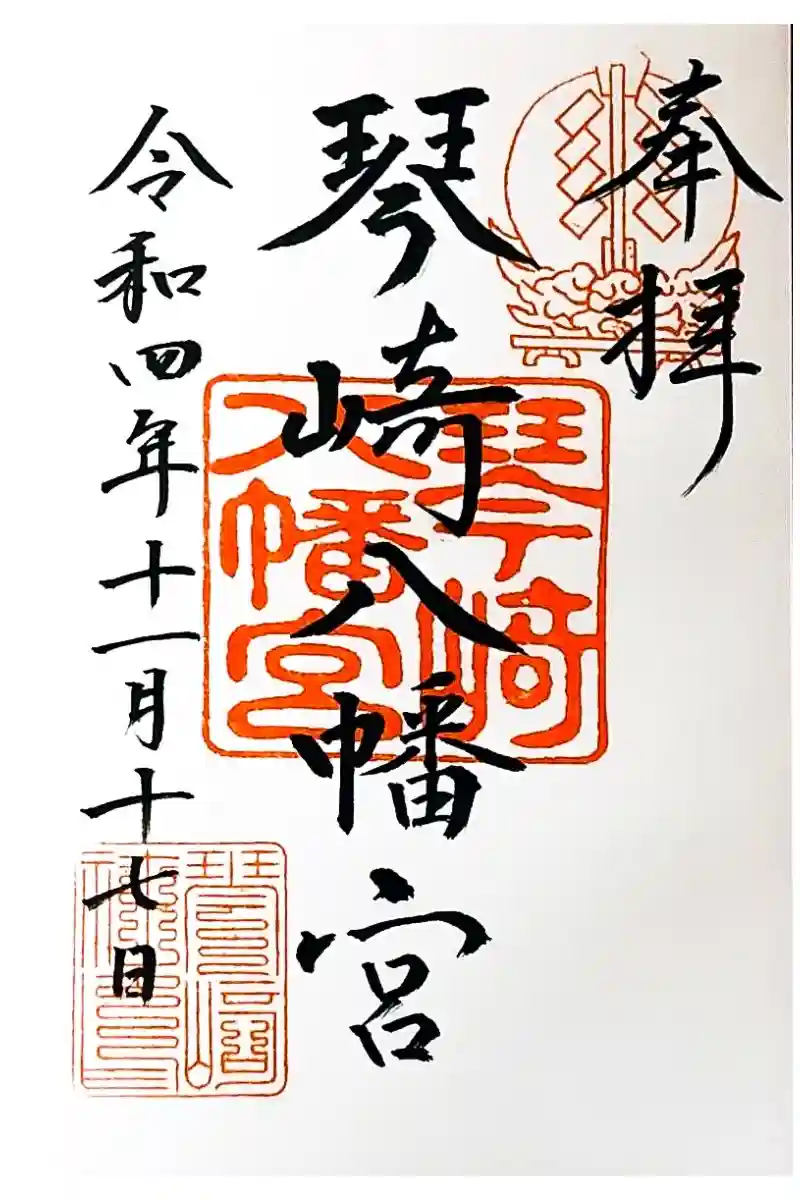 奉拝
琴崎八幡宮
琴崎
八幡宮
令和四年十一月十七日